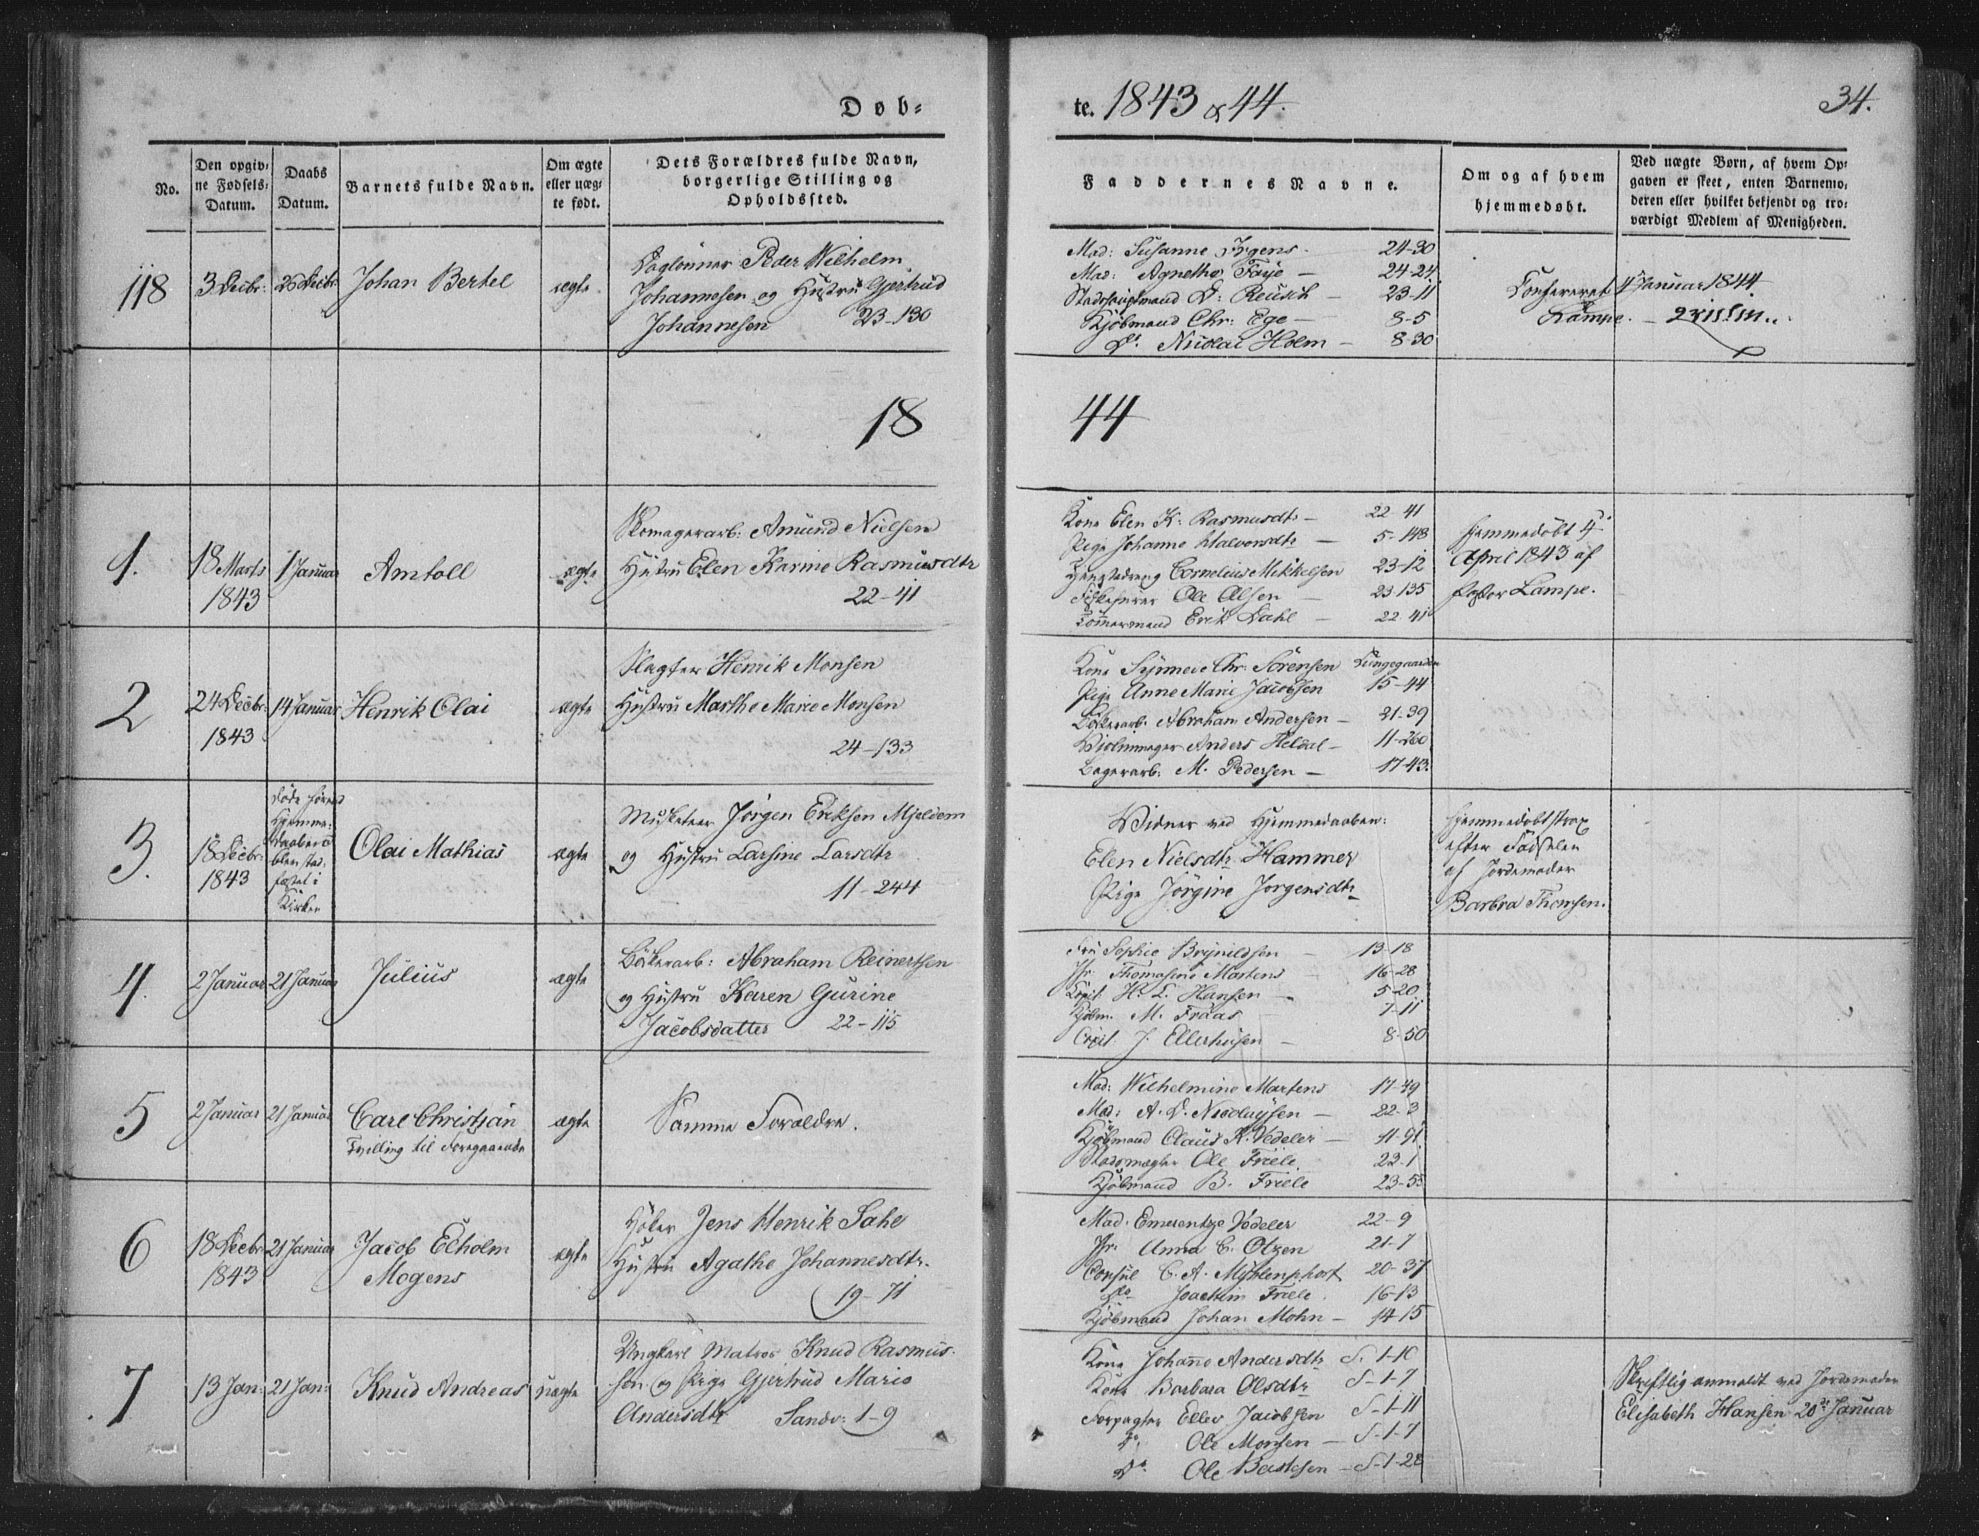 Døb=
te. 1843 & 44.
34.
No.
Den opgiv=
ne Fødsels=
Datum.
Daabs
Datum.
Barnets fulde Navn.
Om ægte
eller uæg=
te født.
Dets Forældres fulde Navn,
borgerlige Stilling og
Opholdssted.
Faddernes Navne.
Om og af hvem
hjemmedøbt.
Ved uægte Børn, af hvem Op=
gaven er skeet, enten Barnemo=
deren eller hvilket bekjendt og tro=
værdigt Medlem af Menigheden.
118
3 Decbr:
26 Decbr:
Johan Bertel
ægte
Daglønner Peder Wilhelm
Johannesen og Hustru Gjertrud
Johannesen 23-130
Mad: Susanne Irgens - 24-30
Mad: Agnethe Faye - 24-24
Stadshauptmand D: Reusch - 23-11
Kjøbmand Chr: Ege - 8-5
Do. Nicolai Holm - 8-30
Confereret 4 Januar 1844
18
44
1.
18 Marts
1843
1 Januar
Amtoll
ægte
Skomagerarb: Amund Nielsen
Hustru Elen Karine Rasmusdtr
22-41
Kone Elen K: Rasmusdtr - 22-41
Pige Johanne Halvorsdtr - 5-148
Cornelius Mikkelsen 23-12
Ole Olsen - 23-135
Tømmermand Erik Dahl - 22-41
Hjemmedøbt 4
April 1843 af
Pastor Lampe.
2
24 Decbr:
1843
14 Januar
Henrik Olai
ægte
Slagter Henrik Monsen
Hustru Marthe Marie Monsen
24-133
Kone Synneve Chr: Sörensen Lungegaarden
Pige Anne Marie Jacobsen 15-44
Bøkkerarb: Abraham Andersen - 21-39
Anders Heldal - 11-260
Bagerarb: M. Pedersen - 17-43.
3.
18 Decbr:
1843
døde førend
Hjemme=
daaben
blev stad
fæstet i
Kirken
Olai Mathias
ægte
Musketeer Jörgen Eriksen Mjeldem
og Hustru Larsine Larsdtr
11-244
Vidner ved Hjemmedaaben:
Elen Nielsdtr Hammer
Pige Jörgine Jorgensdtr
Hjemmedøbt strax
efter Födselen
af Jordemoder
Barbra Thomsen.
4.
2 Januar
21 Januar
Julius
ægte
Bökkerarb: Abraham Reinertsen
og Hustru Karen Gurine
Jacobsdatter 22-115
Fru Sophie Brynildsen - 13-18
Jfr. Thomasine Martens 16-28
Capit. H. L. Hansen - 5-20
Kjøbm. M. Fraas 7-11
Capit. J. Ellerhusen - 8-50
5
2 Januar
21 Januar
Carl Christjan
Tvilling til Foregaaende
ægte
Samme Forældre.
Mad: Wilhelmine Martens 17-49
Mad: A. D. Nicolaysen - 22-3
Kjøbmand Claus K. Vedeler - 11-91
Stadsmægler Ole Friele 23-1
Kjøbmand B. Friele 23-55
6
18 Decbr
1843
21 Januar
Jacob Edholm
Mogens
ægte
Høker Jens Henrik Sahl
Hustru Agathe Johannesdtr.
19-71
Mad. Emerentze Vedeler 22-9
Jfr: Anna C. Otzen 21-7
Consul C. A. Myhlenphort 20-37
Do Joachim Friele. 16-13
Kjøbmand Johan Mohn - 14-15
7
13 Jan:
21 Jan:
Knud Andreas
uægte
Ungkarl Matros Knud Rasmus-
sen og Pige Gjertrud Marie
Andersdtr Sandv: 1-9
Kone Johanne Andersdtr S. 1-10
Kone Barbara Olsdtr S-1-7
Forpagter Eller Jacobsen S-1-11
Do. Ole Monsen - S-1-7
Do. Ole Bertelsen - S-1-28
Skriftlig anmeldt ved Jordemoder
Elisabeth Hansen 20de Januar